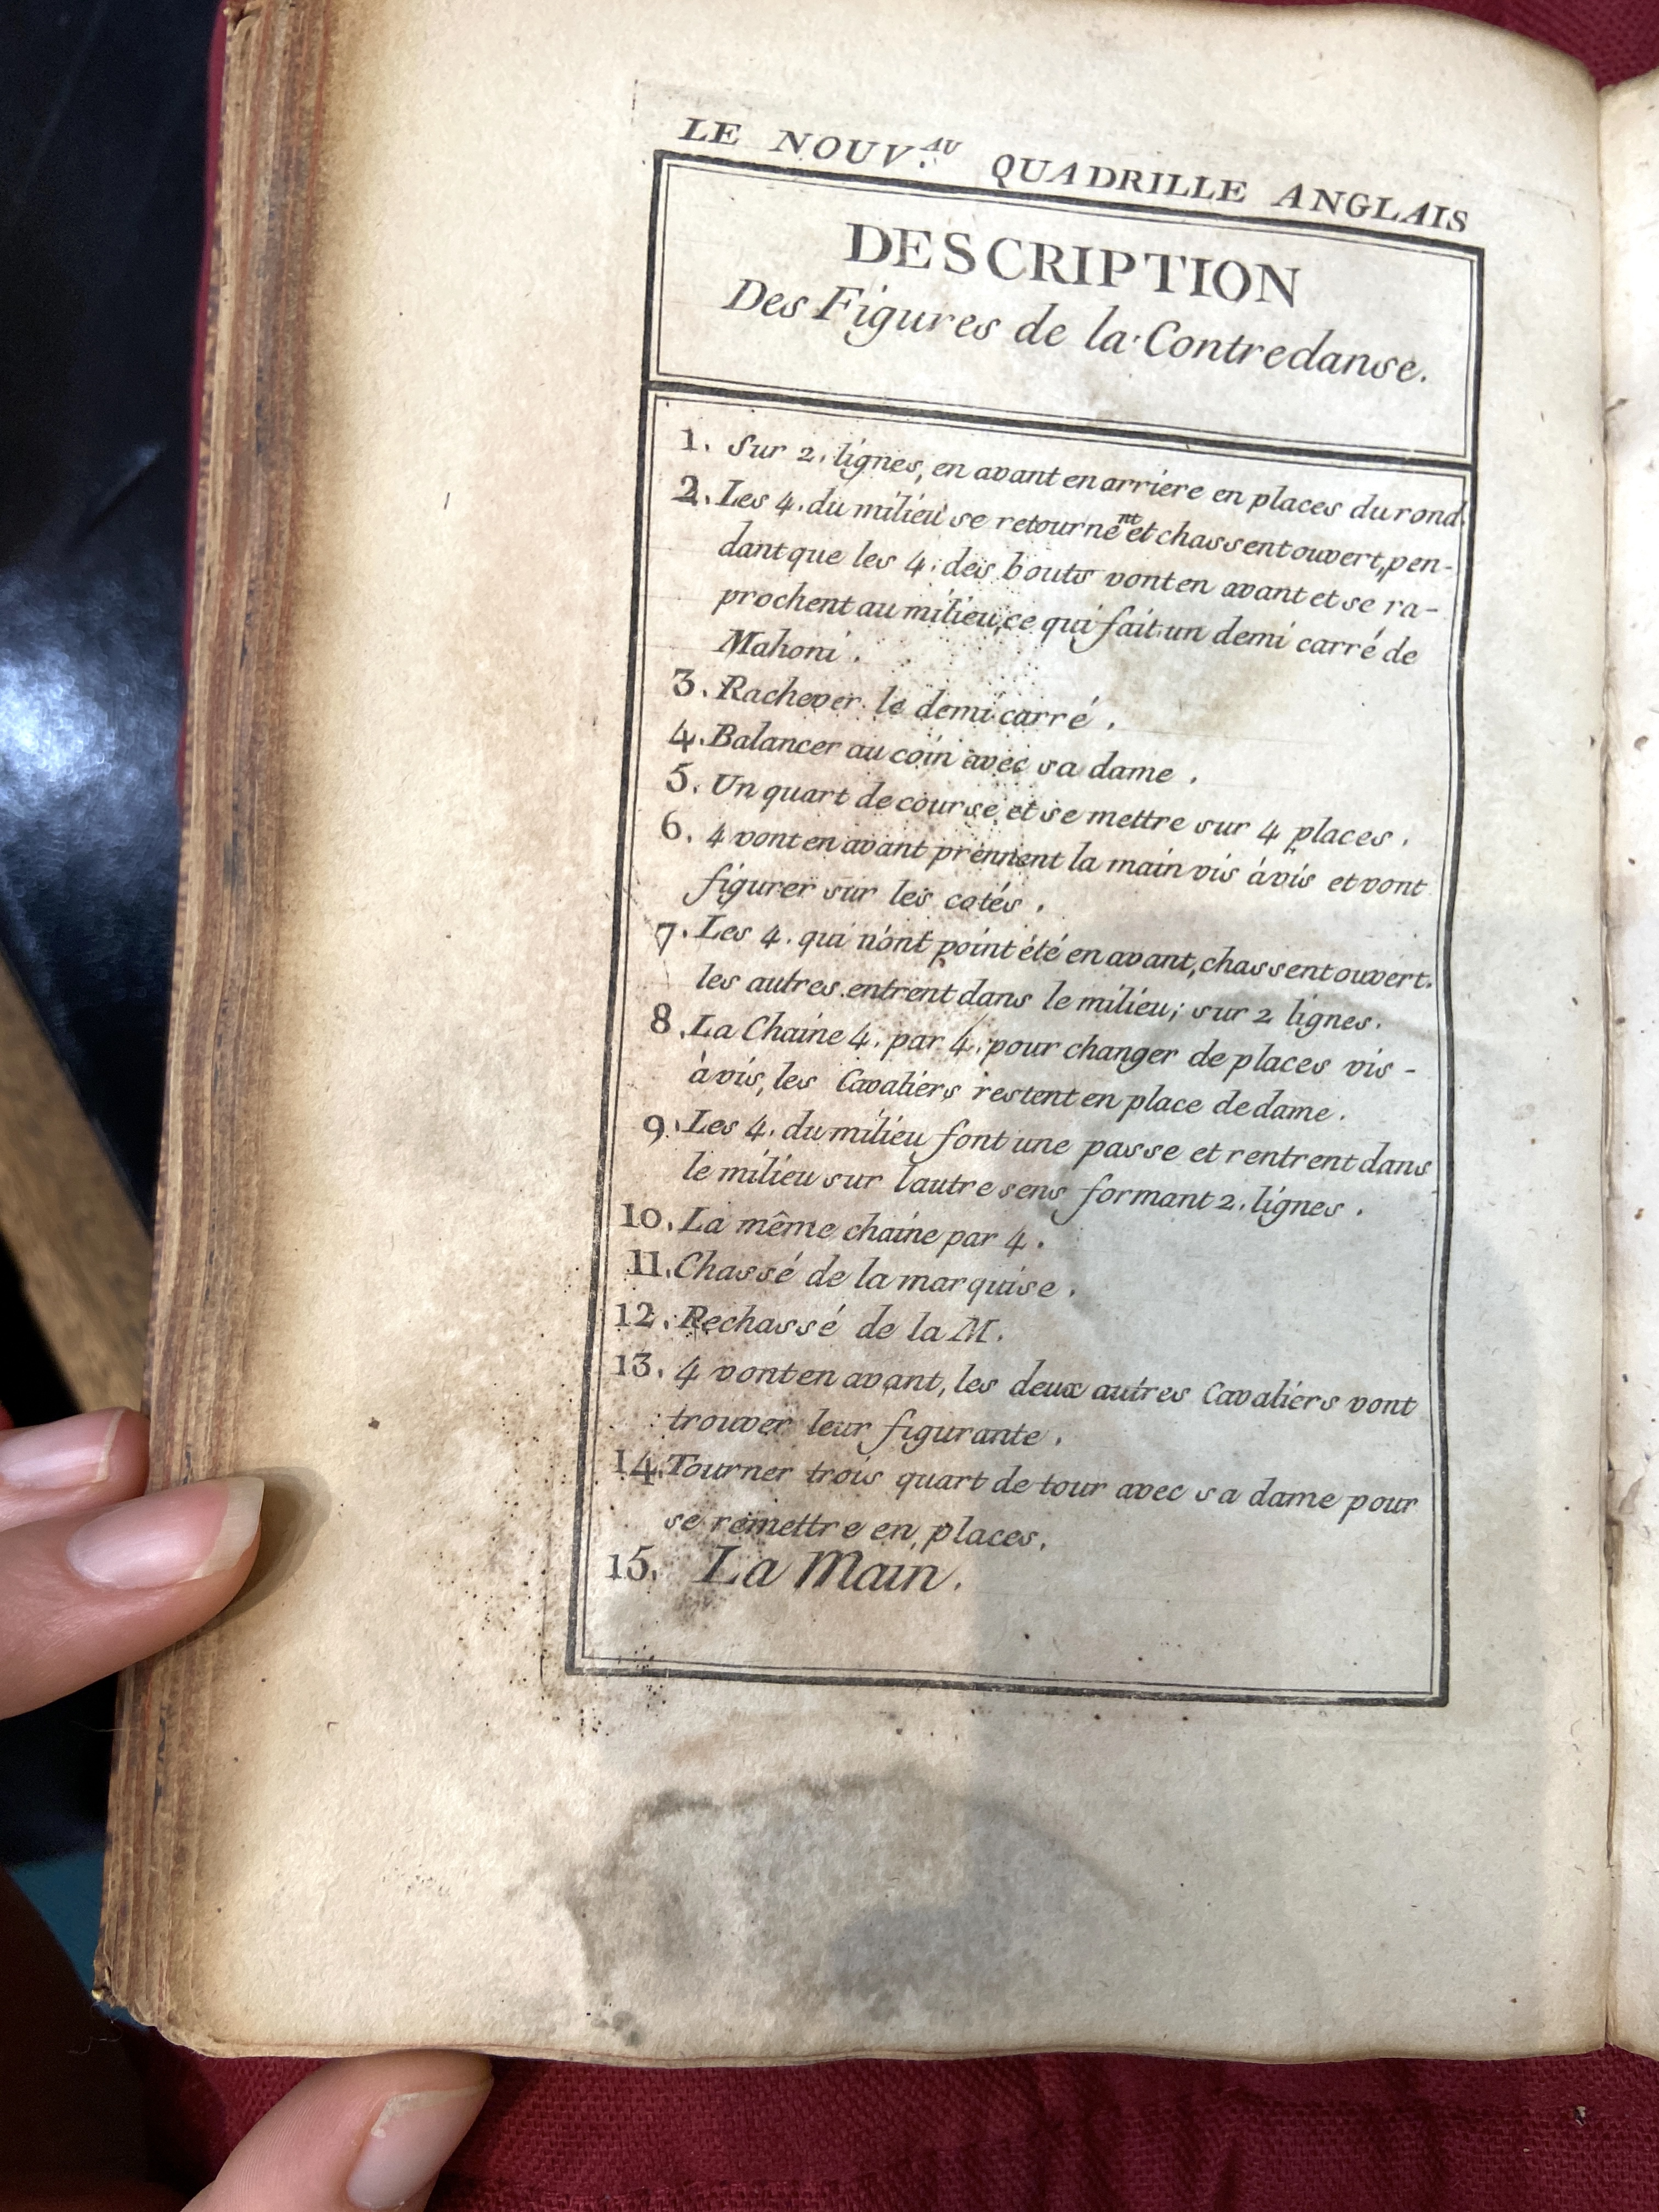 LE NOUV.AU QUADRILLE ANGLAIS
DESCRIPTION
Des Figures de la Contredanse.
1. Sur 2. lignes, en avant en arriere en places du rond.
2. Les 4. du milieu se retournent et chassent ouvert, pen-
dant que les 4. des bouts vont en avant et se ra-
prochent au milieu, ce qui fait un demi carré de
Mahoni.
3. Rachever le demi carré.
4. Balancer au coin avec sa dame.
5. Un quart de course et se mettre sur 4 places.
6. 4 vont en avant prennent la main vis àvis et vont
figurer sur les cotés.
7. Les 4. qui n'ont point été en avant, chassent ouvert.
les autres entrent dans le milieu; sur 2 lignes.
8. La Chaine 4. par 4. pour changer de places vis -
àvis, les Cavaliers restent en place de dame.
9. Les 4. du milieu font une passe et rentrent dans
le milieu sur l'autre sens formant 2. lignes.
10. La même chaine par 4.
11. Chassé de la marquise.
12. Rechassé de la M.
13. 4 vont en avant, les deux autres Cavaliers vont
trouver leur figurante.
14. Tourner trois quart de tour avec sa dame pour
se remettre en places.
15. La Main.